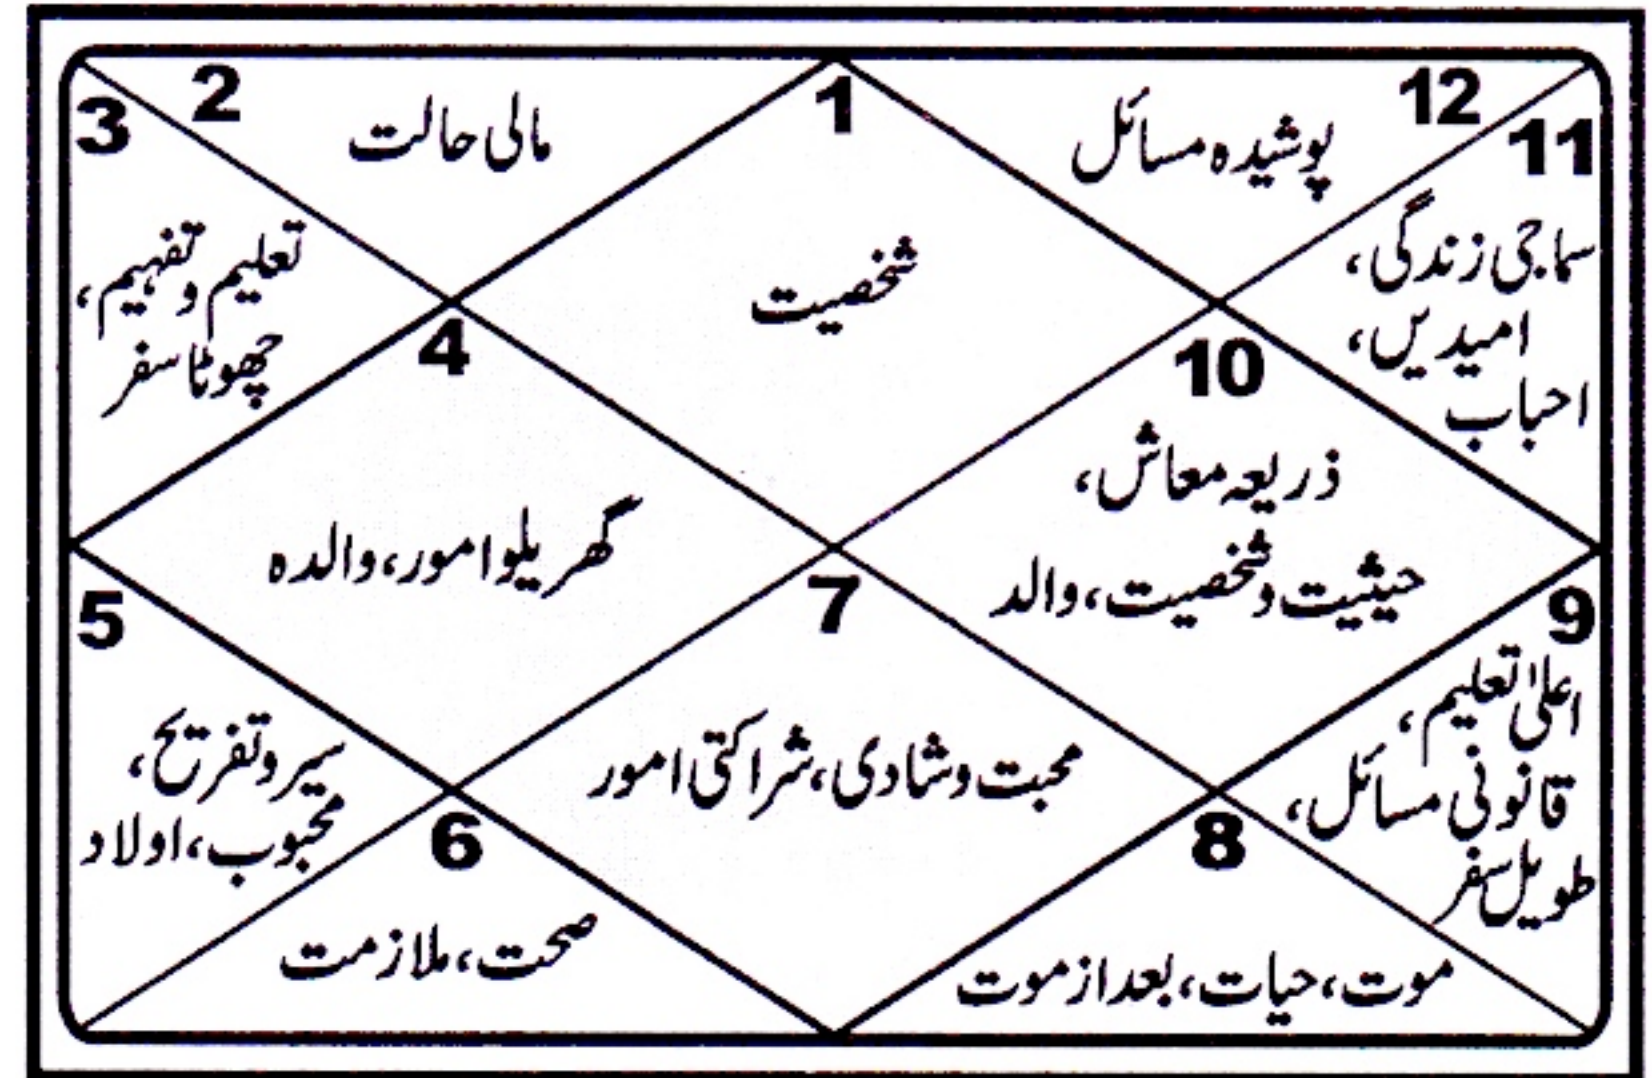 1
شخصیت
2
مالی حالت
3
تعلیم و تفہیم،
چھوٹا سفر
4
گھریلو امور، والدہ
5
سیر و تفریح،
محبوب، اولاد
6
صحت، ملازمت
7
محبت و شادی، شراکتی امور
8
موت، حیات، بعد از موت
9
اعلیٰ تعلیم،
قانونی مسائل،
طویل سفر
10
ذریعہ معاش،
حیثیت و شخصیت، والد
11
سماجی زندگی،
امیدیں،
احباب
12
پوشیدہ مسائل